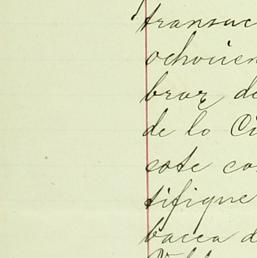 transac
ochocien
brar de
de lo Ci
este co
tifique
bacea d